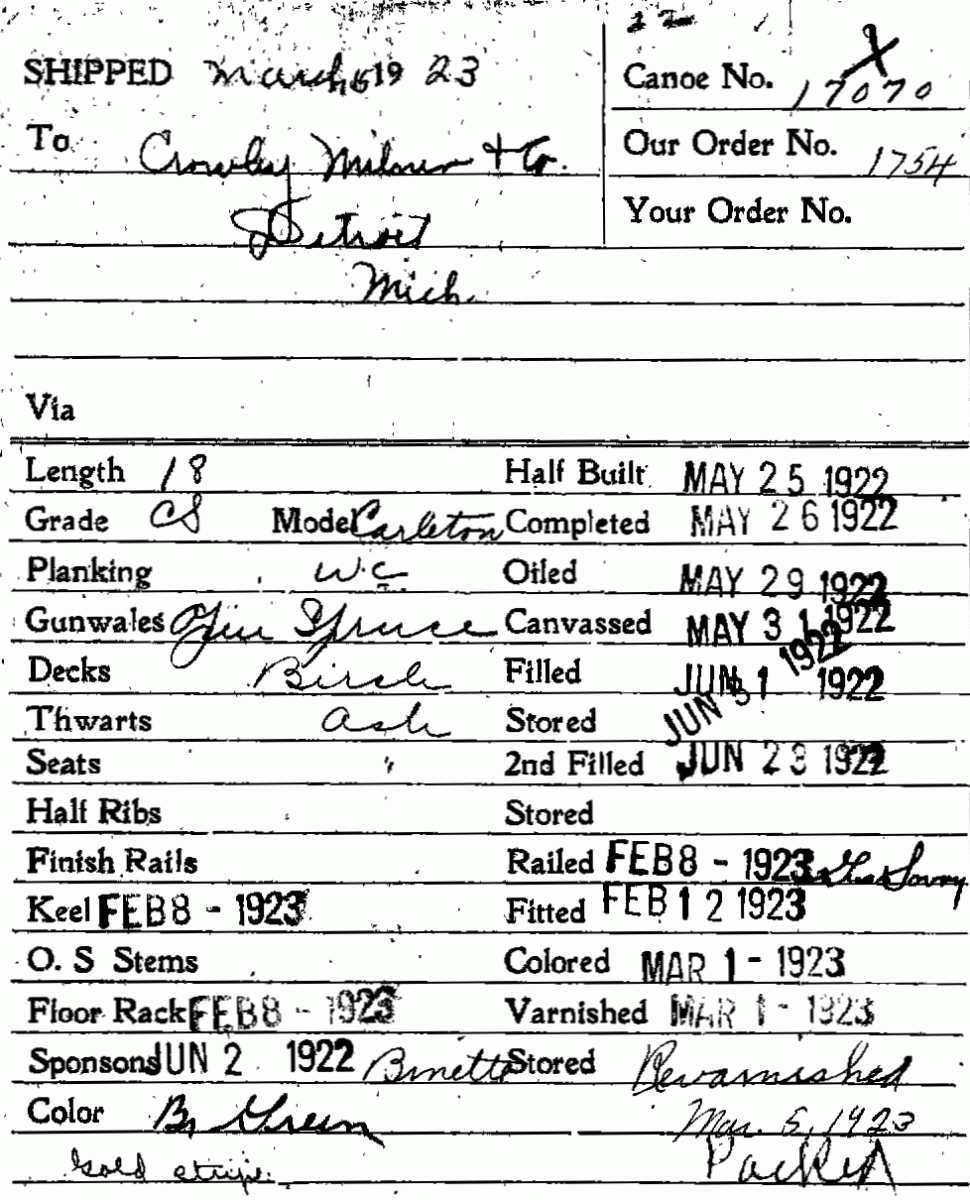 SHIPPED March 6 19 23
Canoe No. 17070
To Crowley Milner + Co.
Our Order No. 1754
Detroit
Your Order No.
Mich.
Via
Length 18 Half Built MAY 25 1922
Grade CS Model Carleton Completed MAY 26 1922
Planking W.C. Oiled MAY 29 1922
Gunwales Spruce Canvassed MAY 31 1922
Decks Birch Filled JUN 1 1922
Thwarts Ash Stored JUN 3 1922
Seats " 2nd Filled JUN 23 1922
Half Ribs Stored
Finish Rails Railed FEB 8 - 1923 Savoy
Keel FEB 8 - 1923 Fitted FEB 12 1923
O. S Stems Colored MAR 1 - 1923
Floor Rack FEB 8 - 1923 Varnished MAR 1 - 1923
Sponsons JUN 2 1922 Binette Stored Revarnished
Color Br Green Mar. 5, 1923
Gold stripe. Packed